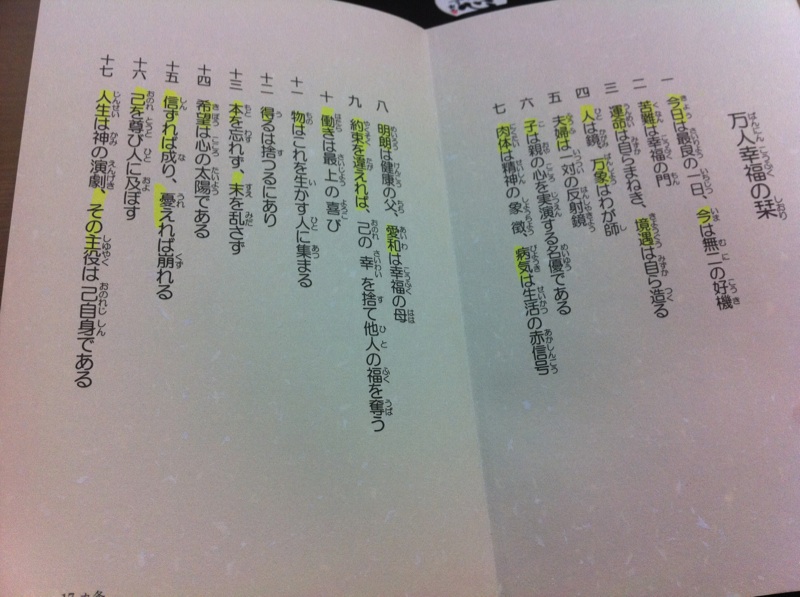 万人幸福の栞
一 今日は最良の一日、今は無二の好機
二 苦難は幸福の門
三 運命は自らまねき、境遇は自ら造る
四 人は鏡、万象はわが師
五 夫婦は一対の反射鏡
六 子は親の心を実演する名優である
七 肉体は精神の象徴、病気は生活の赤信号
八 明朗は健康の父、愛和は幸福の母
九 約束を違えれば、己の幸を捨て他人の福を奪う
十 働きは最上の喜び
十一 物はこれを生かす人に集まる
十二 得るは捨つるにあり
十三 本を忘れず、末を乱さず
十四 希望は心の太陽である
十五 信ずれば成り、憂えれば崩れる
十六 己を尊び人に及ぼす
十七 人生は神の演劇、その主役は己自身である